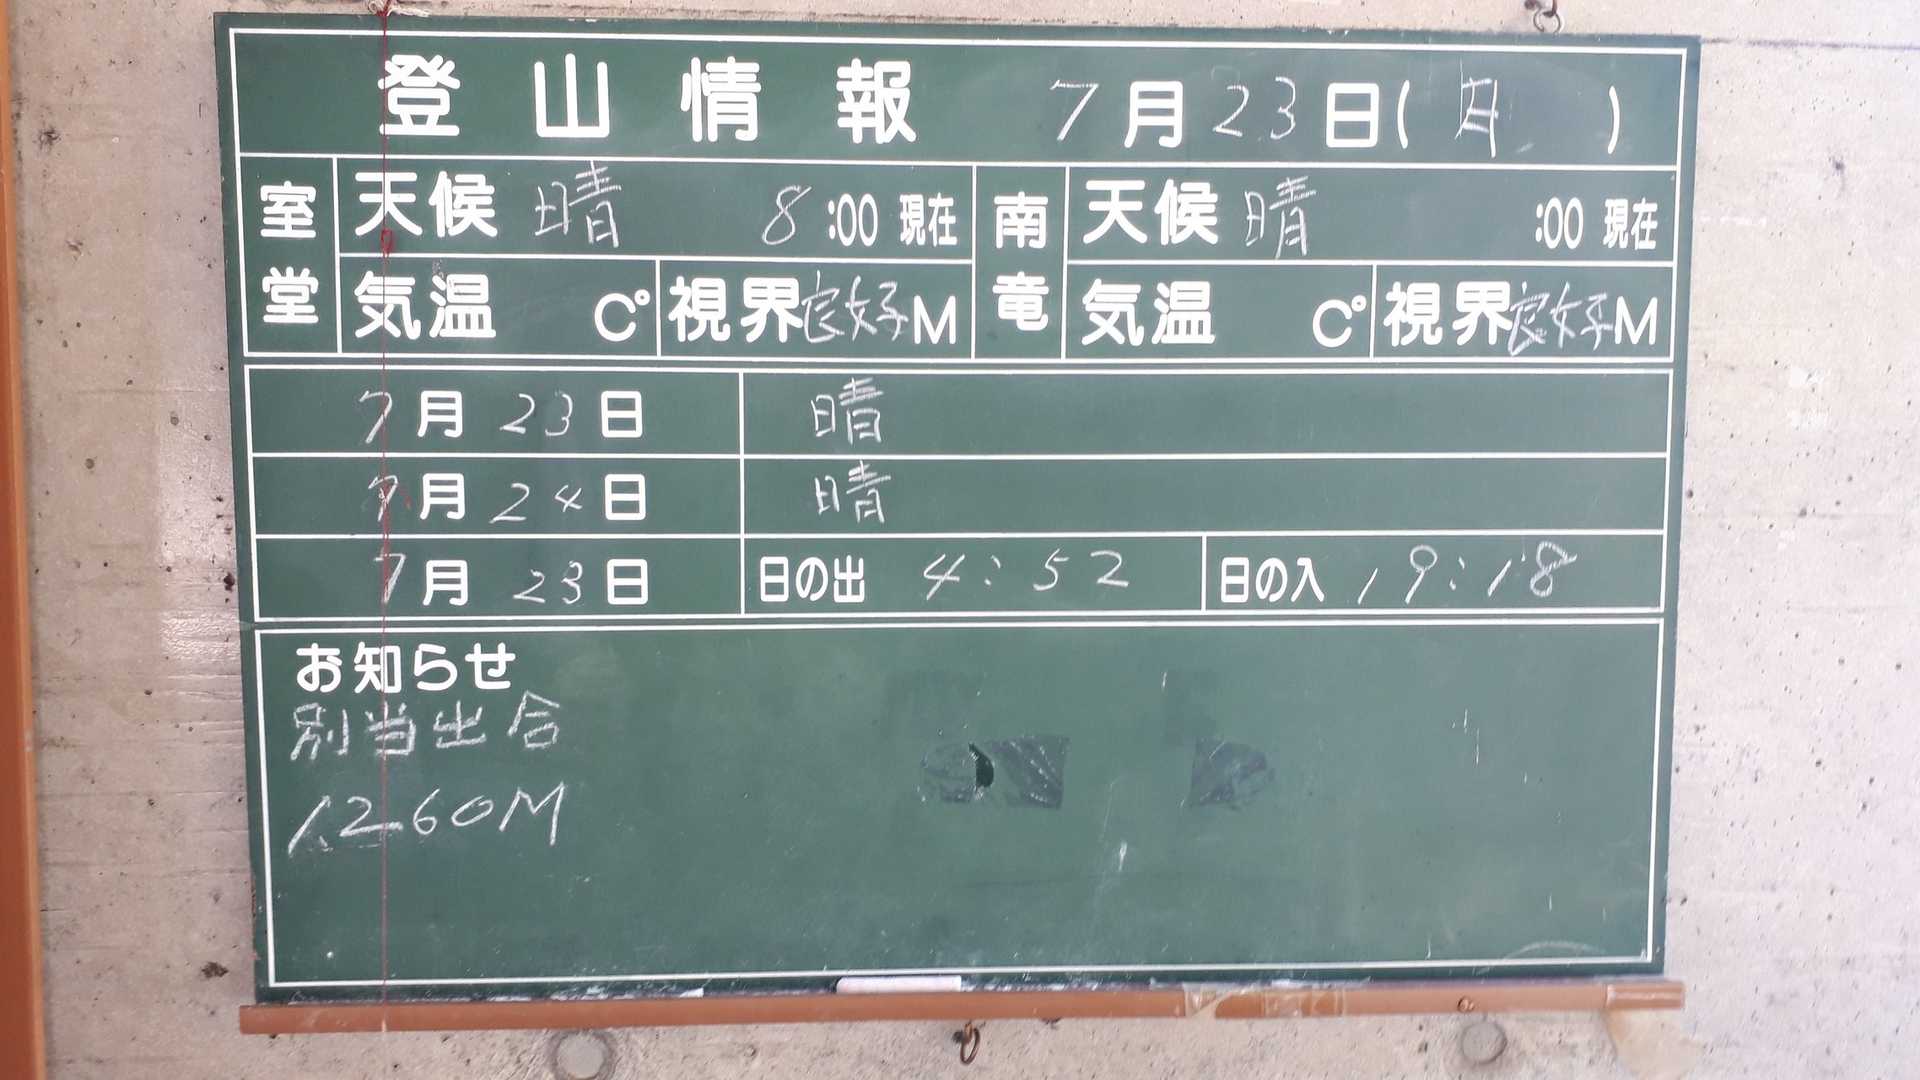 登山情報 7月23日(月)
室堂 天候 晴 8:00 現在
気温 C° 視界 良好 M
南竜 天候 晴 :00 現在
気温 C° 視界 良好 M
7月23日 晴
7月24日 晴
7月23日 日の出 4:52 日の入 19:18
お知らせ
別当出合
1260M